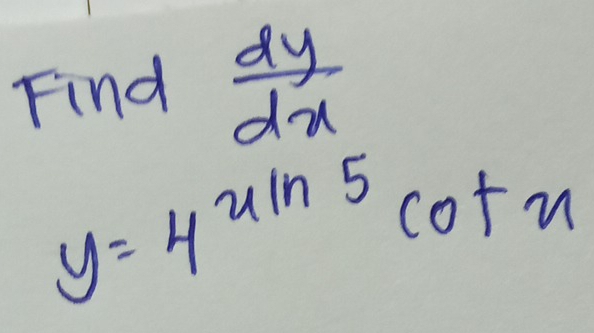 Find dy/dx
y = 4^{x ln 5} cot x